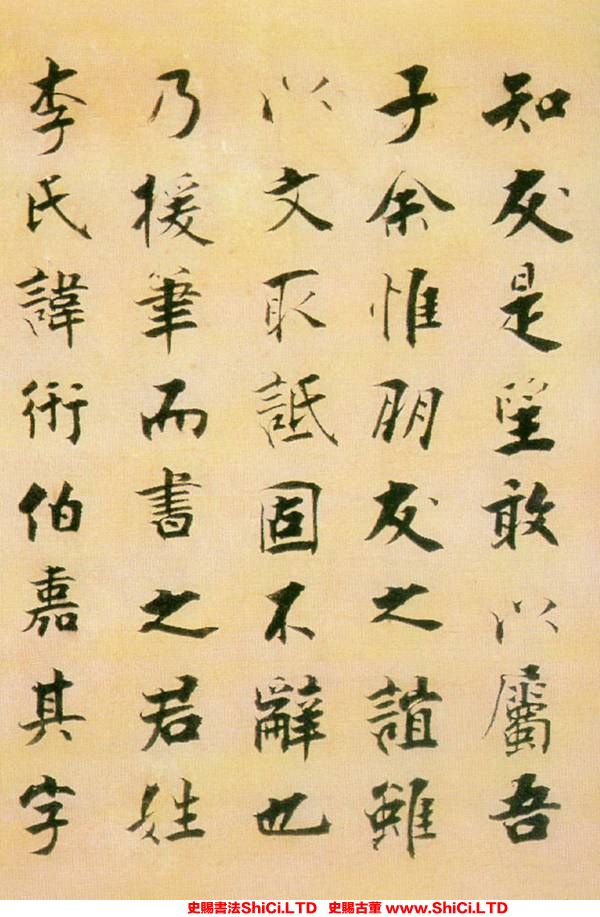 知友是望敢以屬吾
子余惟朋友之誼雖
以文取詆固不辭也
乃援筆而書之君姓
李氏諱衎伯嘉其字
史賜書法ShiCi.LTD 史賜古董 www.ShiCi.LTD